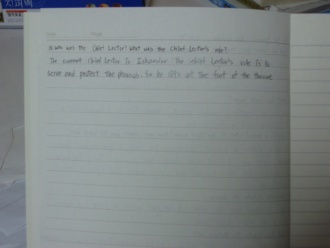 지퍼백
who was the Chief Lector? What was the Chief Lector's role?
The current Chief Lector is The Chief Lector's role is to
serve and protect the pharaoh. he sits at the foot of the throne